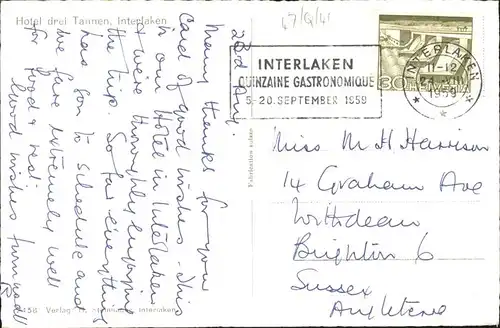 Hotel drei Tannen, Interlaken
23rd Aug.
Many thanks for your
Card of good wishes. This
is our Hotel in Interlaken
& we're thoroughly enjoying
the trip. So far everything
has gone to schedule and
we fare extremely well
for food & rest.
Good wishes from all
INTERLAKEN
QUINZAINE GASTRONOMIQUE
5-20. SEPTEMBER 1959
30 HELVETIA
INTERLAKEN
11-12
1959
Fabrication suisse
Miss M H Harrison
14 Graham Ave
Withdean
Brighton 6
Sussex
Angleterre
Verlag Interlaken